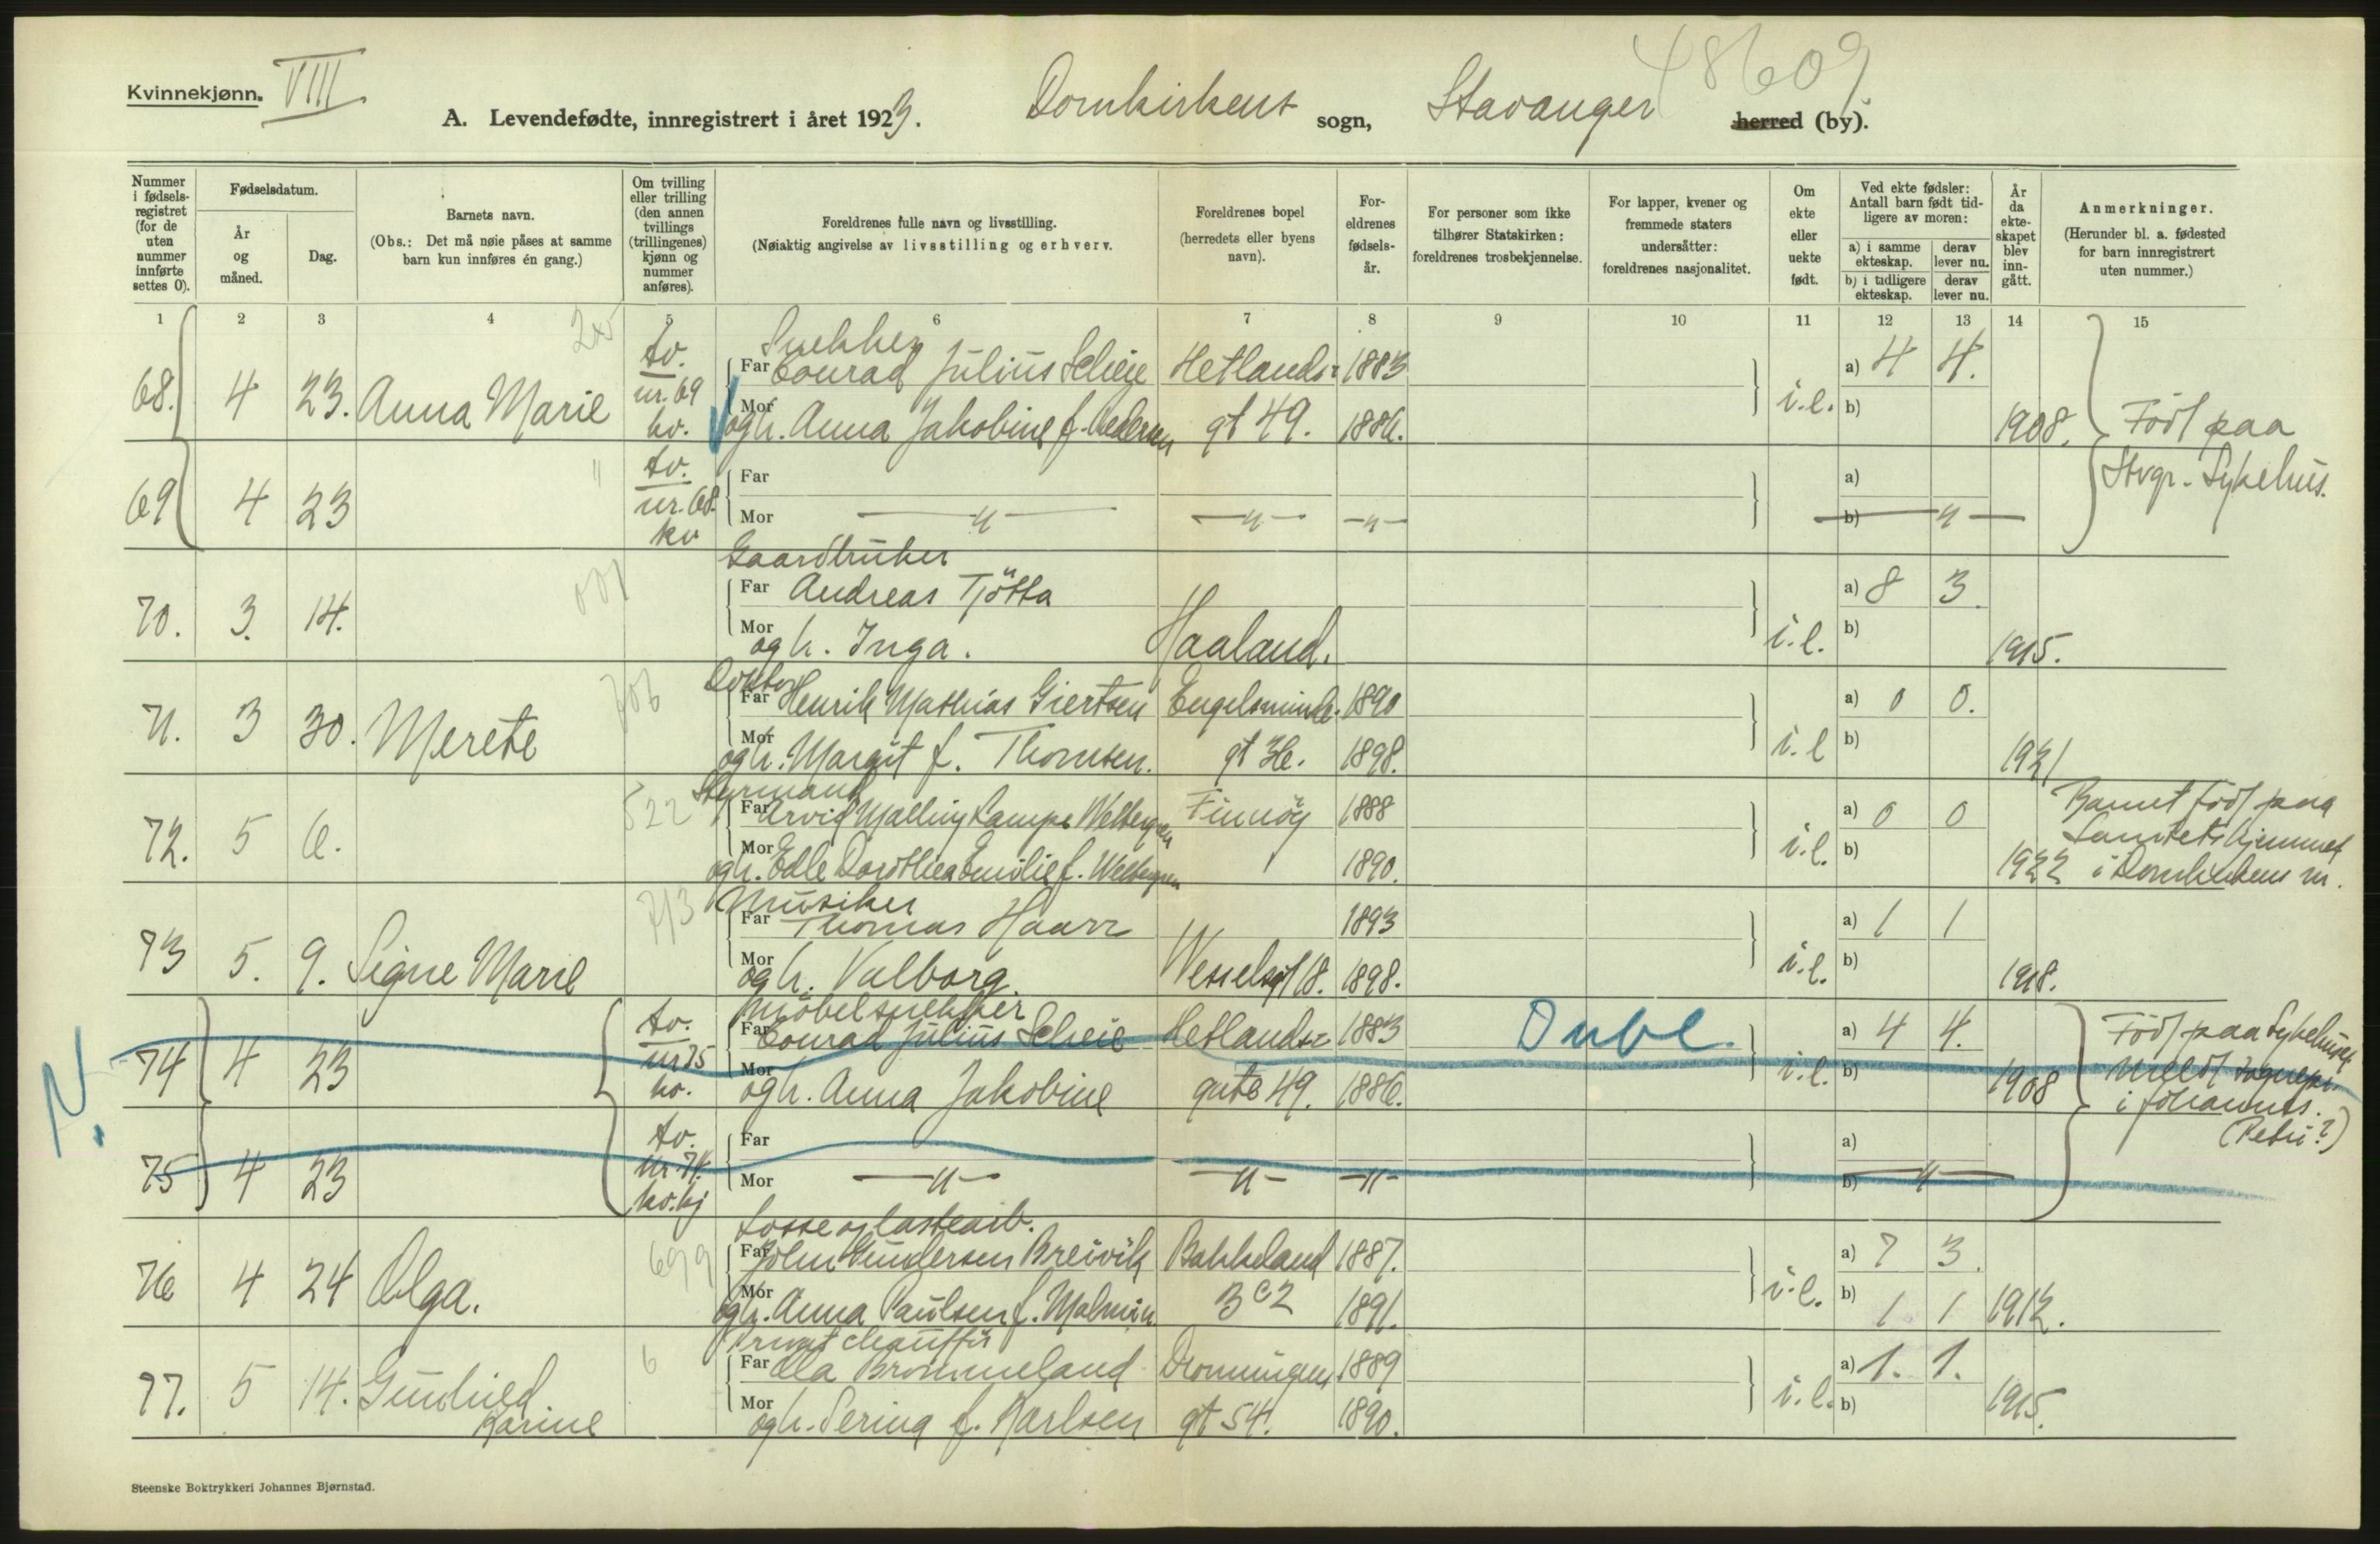 Kvinnekjønn. VIII
48609
A. Levendefødte, innregistrert i året 1923. Domkirkens sogn, Stavanger herred (by).
Nummer i fødsels-registret (for de uten nummer innførte settes 0).
Fødselsdatum.
År og måned.
Dag.
Barnets navn.
(Obs.: Det må nøie påses at samme barn kun innføres én gang.)
Om tvilling eller trilling (den annen tvillings (trillingenes) kjønn og nummer anføres).
Foreldrenes fulle navn og livsstilling.
(Nøiaktig angivelse av livsstilling og erhverv.
Foreldrenes bopel (herredets eller byens navn).
For-eldrenes fødsels-år.
For personer som ikke tilhører Statskirken: foreldrenes trosbekjennelse.
For lapper, kvener og fremmede staters undersåtter: foreldrenes nasjonalitet.
Om ekte eller uekte født.
Ved ekte fødsler: Antall barn født tid-ligere av moren:
a) i samme ekteskap. derav lever nu.
b) i tidligere ekteskap. derav lever nu.
År da ekte-skapet blev inn-gått.
Anmerkninger.
(Herunder bl. a. fødested for barn innregistrert uten nummer.)
1 2 3 4 5 6 7 8 9 10 11 12 13 14 15
Snekker
68. 4 23. Anna Marie tv. nr. 69 kv. Far Conrad Julius Scheie Hetlands- 1883 a) 4 4.
Mor og h. Anna Jakobine f. Pedersen gt 49. 1886. i.e. b) 1908. Född paa
69 4 23 tv. nr. 68. kv Far a) Stvgr. Sykehus.
Mor —"— —"— —"— b) —"—
Gaardbruker
70. 3. 14. Far Andreas Tjötta a) 8 3.
Mor og h. Inga. Haaland. i.e. b) 1915.
Doktor
71. 3 30. Merete Far Henrik Mathias Giertsen Engelsminde- 1890 a) 0 0.
Mor og h. Margit f. Thomsen. gt 36. 1898. i.e b) 1921
Styrmand
72. 5 6. 522 Far Arvid Malling Kampe Welbergen Finnöy 1888 a) 0 0 Barnet född paa
Mor og h. Edle Dorothea Emilie f. Welbergen 1890. i.e. b) 1922 i Domkirkens m.
Musiker
73 5. 9. Signe Marie 713 Far Thomas Haarr 1893 a) 1 1
Mor og h. Valborg. Wesselsgt 18. 1898. i.e. b) 1918.
Möbelsnekker
74 4 23 tv. nr 75 kv. Far Conrad Julius Scheie Hetlands- 1883 Dubl. a) 4 4. Född paa Sykehuset
Mor og h. Anna Jakobine gate 49. 1886. i.e. b) 1908 meldt sognepr.
i Johannes.
(Petri?)
75 4 23 tv. nr. 74. kv. kj Far a)
Mor —"— —"— —"— b) —"—
Losse og lastearb.
76 4 24 Olga. 699 Far John Gundersen Breivik Bakkeland 1887. a) 7 3.
Mor og h. Anna Paulsen f. Malmin B c 2 1891. i.e. b) 1 1 1912.
Privat chauffør
77. 5 14. Gunhild Karine 6 Far Ola Brommeland Dronningens 1889 a) 1. 1.
Mor og h. Serina f. Karlsen gt 54. 1890. i.e. b) 1915.
Steenske Boktrykkeri Johannes Bjørnstad.